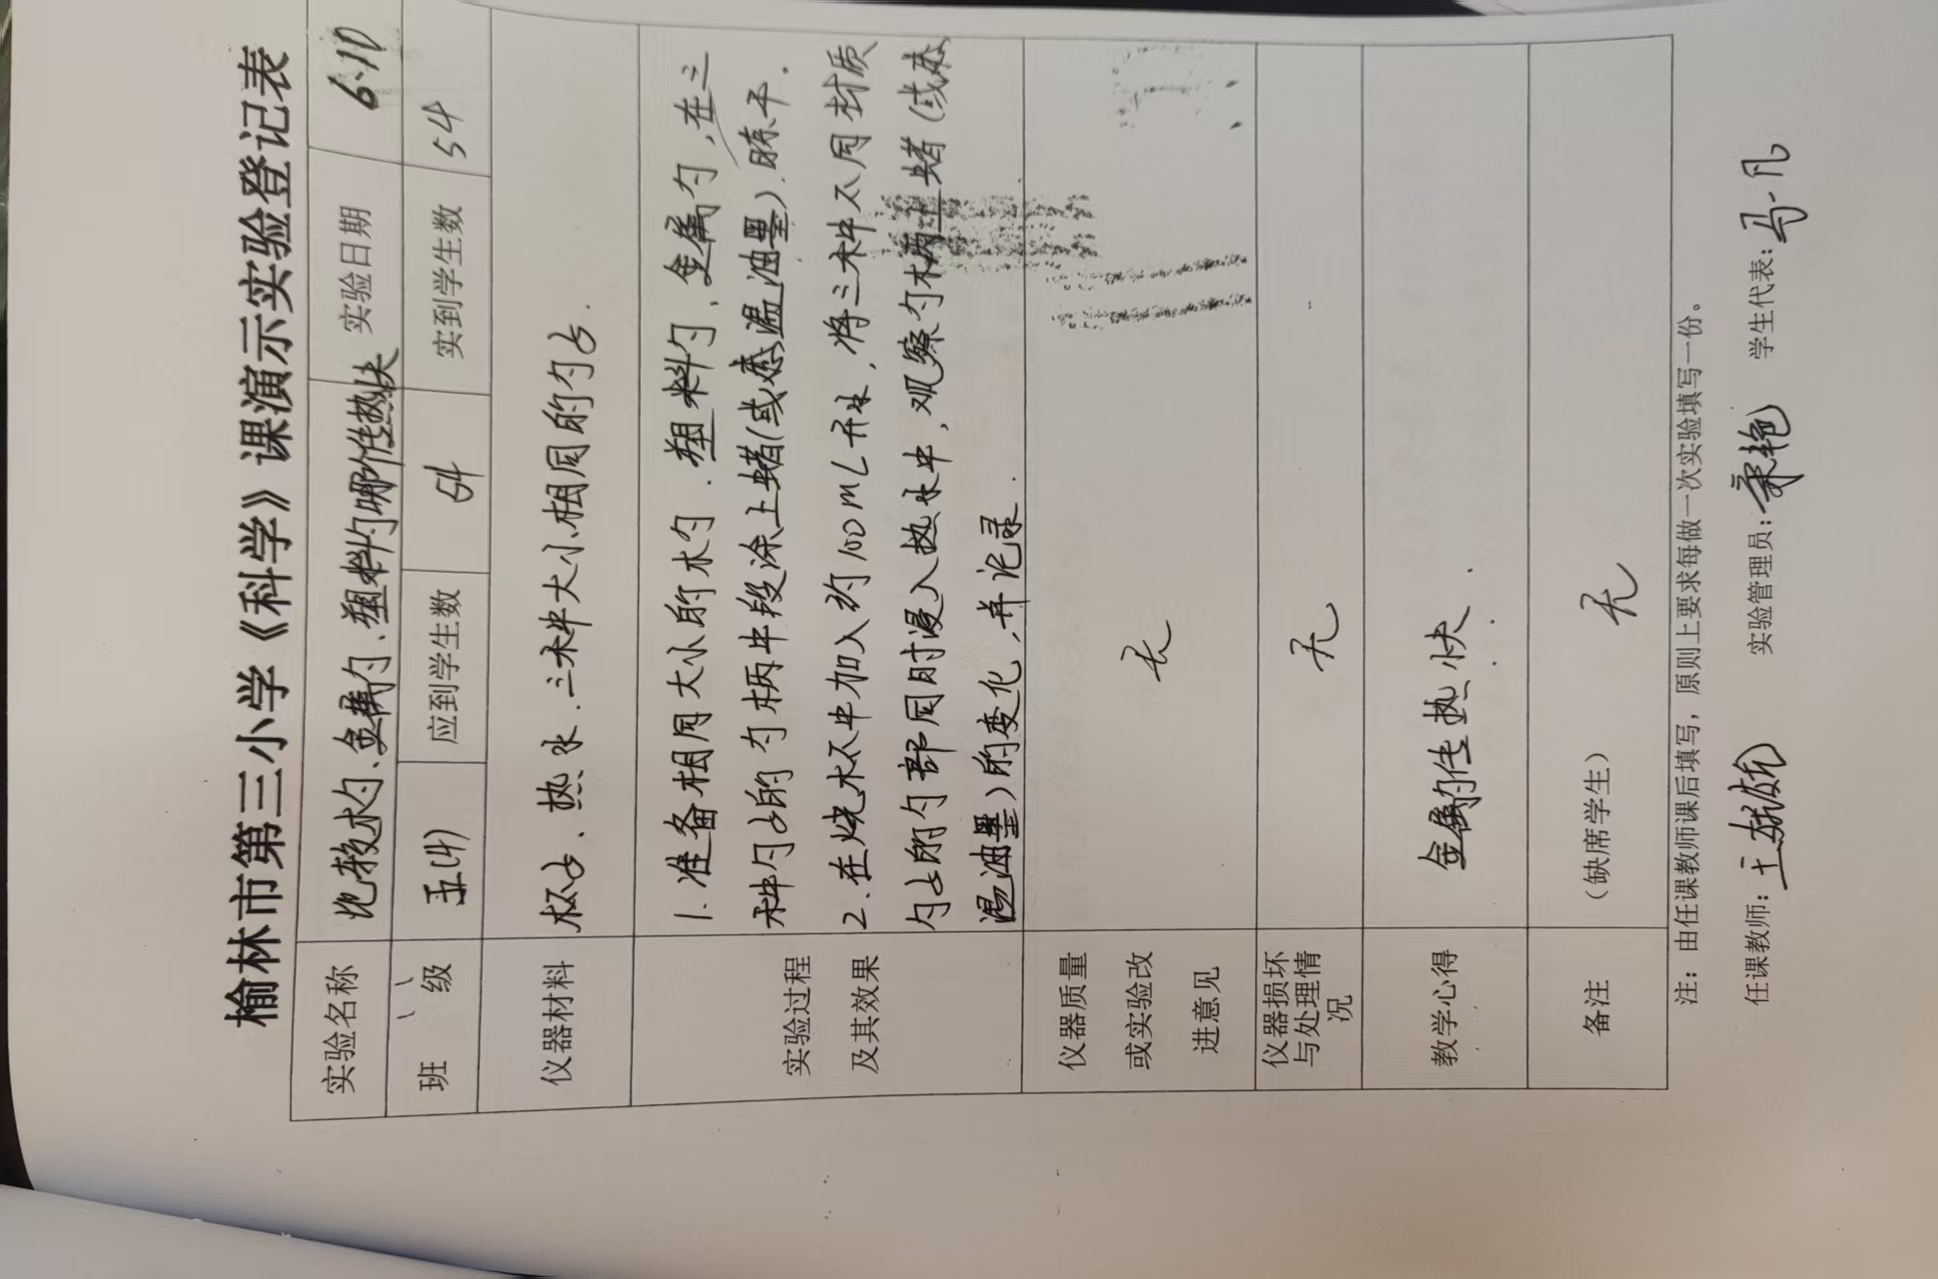 榆林市第三小学《科学》课演示实验登记表
实验名称 比较木勺、金属勺、塑料勺哪个传热快 实验日期 6.10
班级 五(4) 应到学生数 54 实到学生数 54
仪器材料 杯子、热水、三种大小相同的勺子.
实验过程 1.准备相同大小的木勺、塑料勺、金属勺,在三
种勺子的勺柄中段涂上蜡(或感温油墨).晾干.
及其效果 2.在烧杯中加入约100mL开水,将三种不同材质
勺子的勺部同时浸入热水中,观察勺柄上蜡(或感
温油墨)的变化,并记录.
仪器质量
或实验改 无
进意见
仪器损坏
与处理情 无
况
教学心得 金属的传热快.
备注 (缺席学生) 无
注:由任课教师课后填写,原则上要求每做一次实验填写一份。
任课教师: 实验管理员: 学生代表:马凡